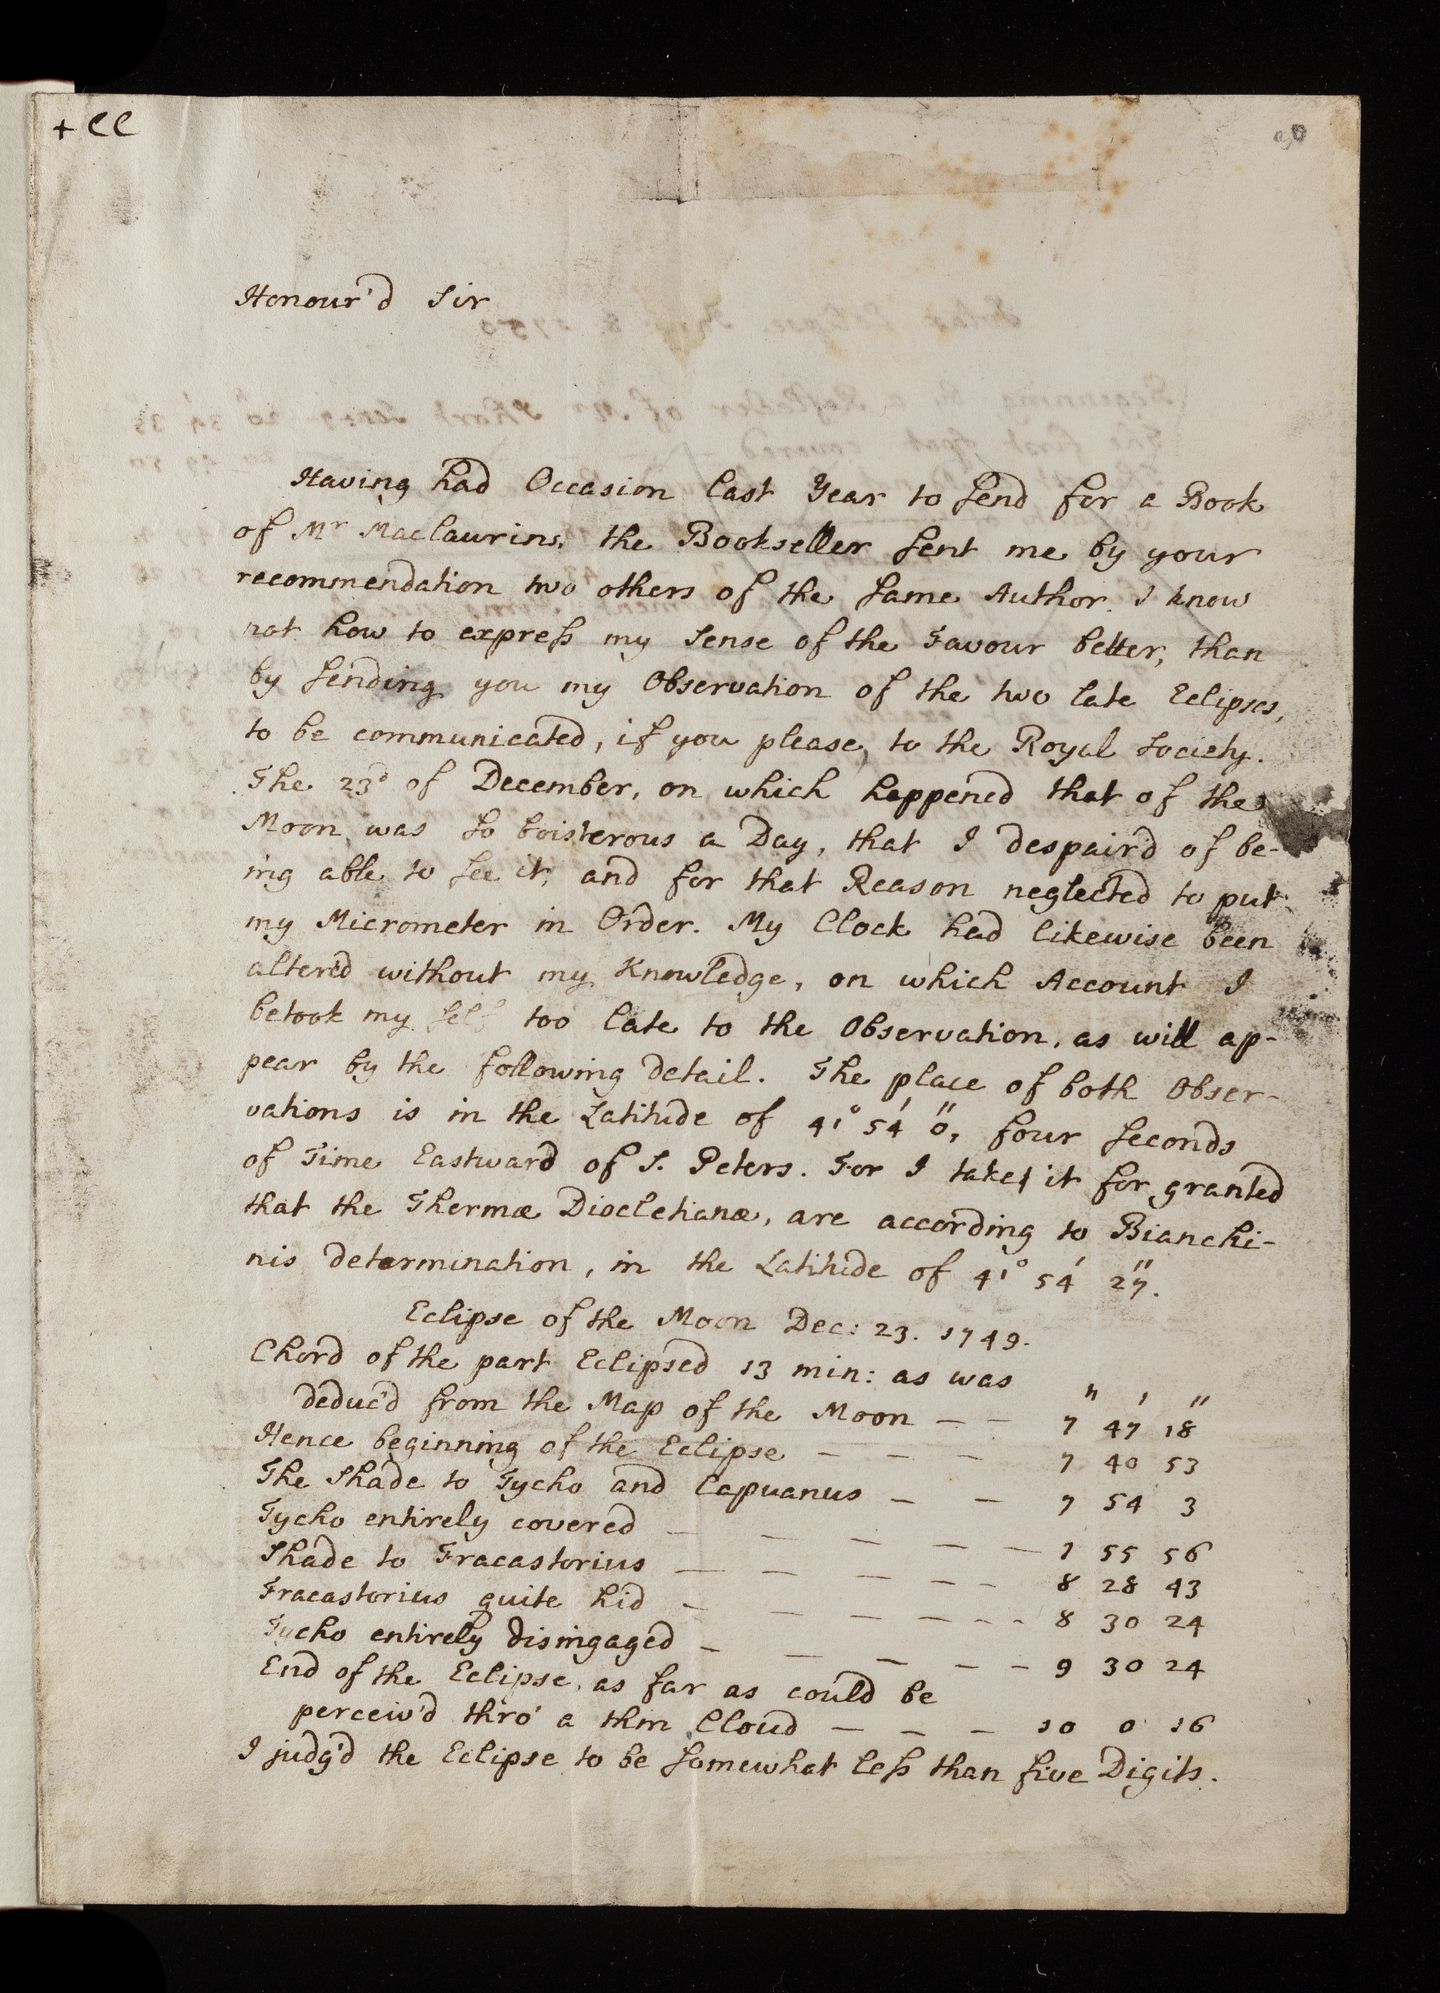 + CC
90
Honour'd Sir
Having had Occasion last Year to send for a Book
of Mr Maclaurins, the Bookseller sent me by your
recommendation two others of the same Author. I know
not how to express my Sense of the Favour better, than
by sending you my Observation of the two late Eclipses,
to be communicated, if you please, to the Royal Society.
The 23d of December, on which happened that of the
Moon, was so boisterous a Day, that I despair'd of be-
ing able to see it, and for that Reason neglected to put
my Micrometer in Order. My Clock had likewise been
altered without my Knowledge, on which Account I
betook my self too late to the Observation, as will ap-
pear by the following detail. The place of both Obser-
vations is in the Latitude of 41° 54′ 0″, four seconds
of Time Eastward of S. Peters. For I take it for granted
that the Thermæ Diocletianæ, are according to Bianchi-
nis determination, in the Latitude of 41° 54′ 27″.
Eclipse of the Moon Dec: 23. 1749.
Chord of the part Eclipsed 13 min: as was
deduc'd from the Map of the Moon — — 7″ 47′ 18″
Hence beginning of the Eclipse — — — 7 40 53
The Shade to Tycho and Capuanus — — 7 54 3
Tycho entirely covered — — — — — 7 55 56
Shade to Fracastorius — — — — — 8 28 43
Fracastorius quite hid — — — — — - 8 30 24
Tycho entirely disingaged — — — — — 9 30 24
End of the Eclipse, as far as could be
perceiv'd thro' a thin Cloud — — — 10 0 16
I judg'd the Eclipse to be somewhat less than five Digits.